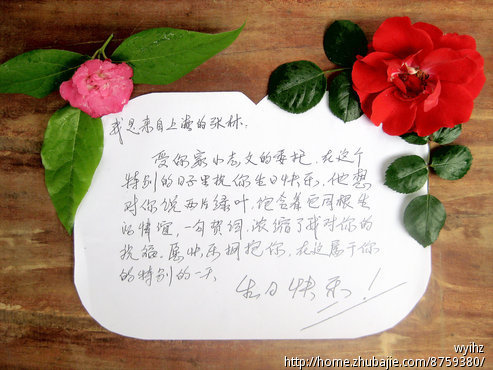 我是来自上海的张林:
受你家小文的委托,在这个
特别的日子里祝你生日快乐。他想
对你说两片绿叶,饱含着它同根生
的情谊,一句贺词,浓缩了我对你的
祝福。愿快乐拥抱你,在这属于你
的特别的一天
生日快乐!
wyihz
http://home.zhubajie.com/8759380/